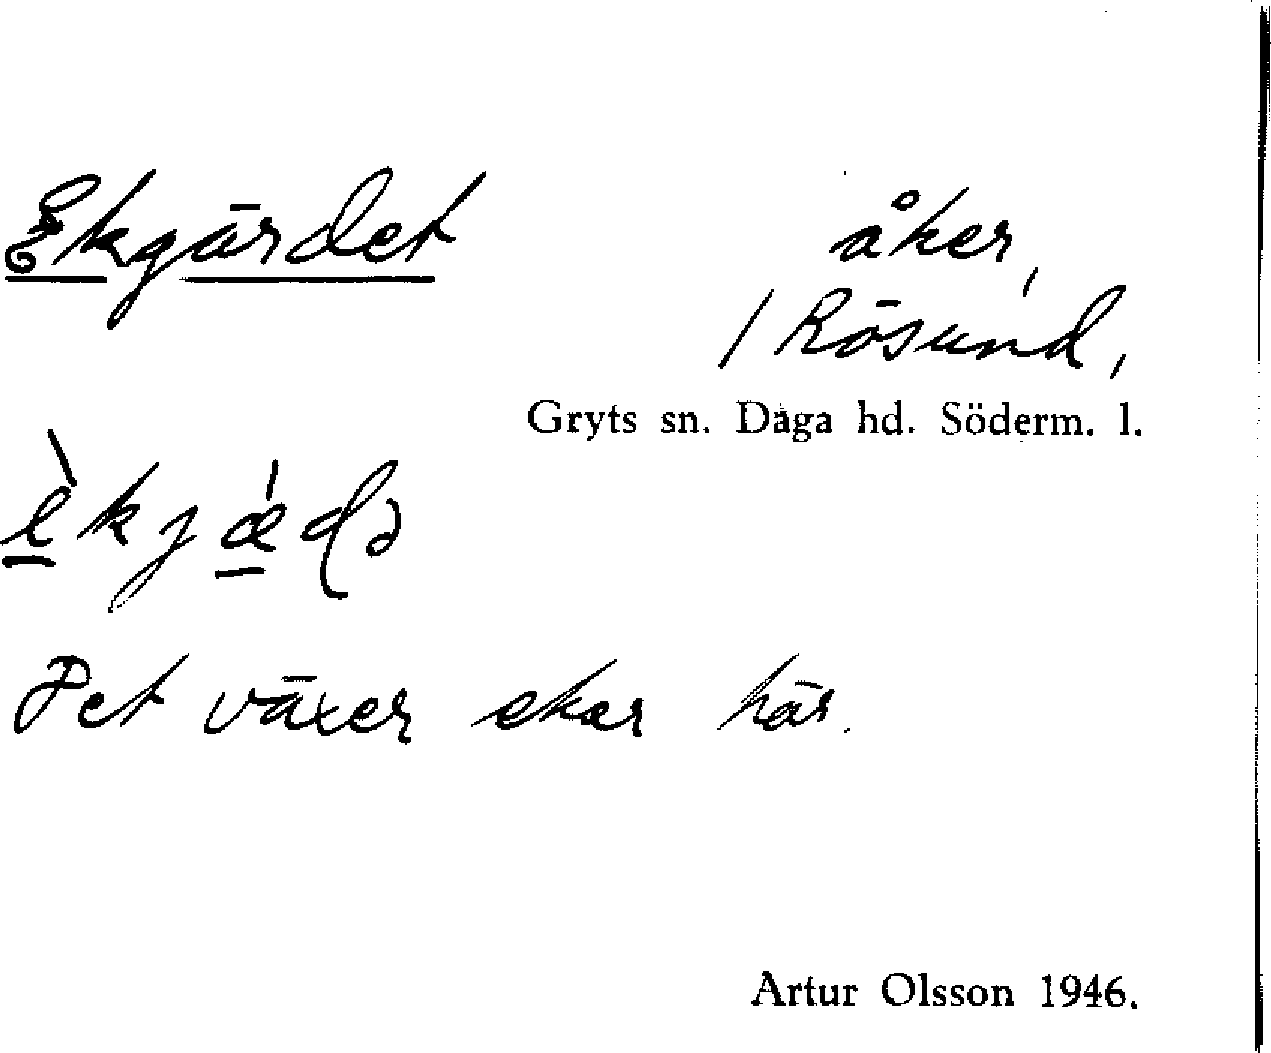 Ekgärdet
åker,
/ Rösund,
Gryts sn. Daga hd. Söderm. l.
Det växer ekar här.
Artur Olsson 1946.